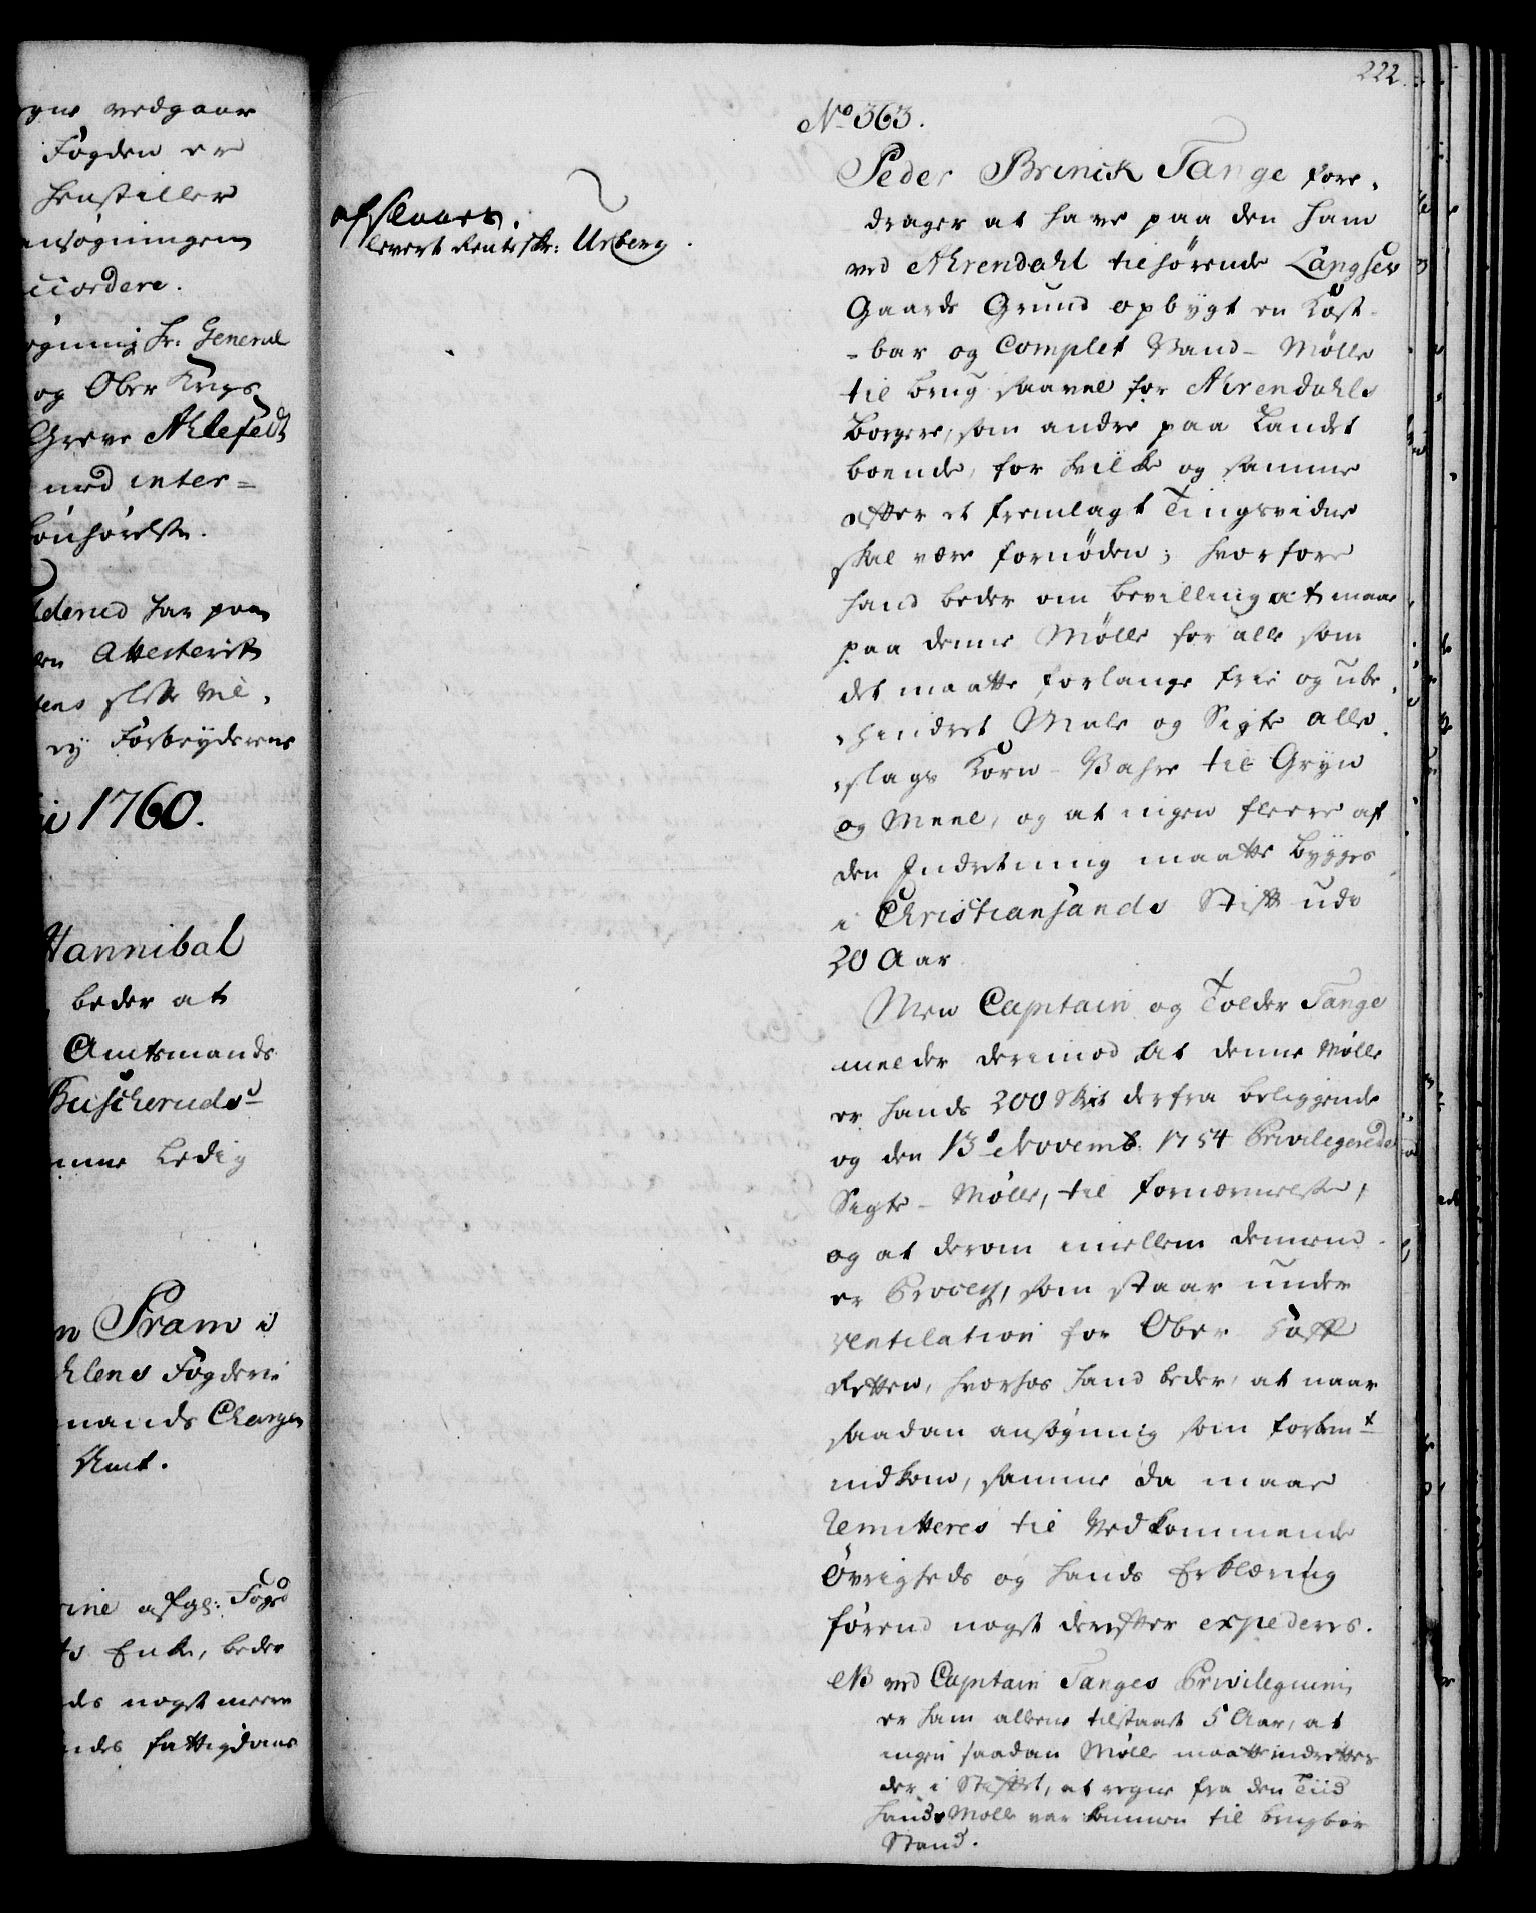 egne vedgaar
Fogden er
henstiller
ansøgningen
ccordere.
øgning hr: General
og Ober Krigs
Greve Ahlefeldt
med inter=
bønhørelse.
lderud har paa
den Attesterits
tens slette vil,
ey Forbryderens
ii 1760.
Hannibal
beder at
Amtmands
Buscheruds
mme Ledig
n Pram i
hlens Fogderie
mands Charge
Amt.
rine afgl: Foged
ts Enke, beder
ds noget meere
ndes fattigdoms
222.
No 363.
Peder Brinck Tange fore-
drager at have paa den ham
ved Ahrendahl tilhørende Langsev
Gaards Grund opbygt en Kost-
-bar og Complet Vand-Mølle
til brug saavel for Ahrendahls
Borgere, som andre paa Landet
boende, for hvilke og samme
efter et fremlagt Tingsvidne
skal være fornøden; hvorfore
hand beder om bevilling at maae
paa denne Mølle for alle som
det maatte forlange frie og ube-
-hindret Male og Sigte alle
-slags Korn-Vahre til Gryn
og Meel, og at ingen fleere af
den Indretning maatte bygges
i Christiansands Stift udi
20 Aar
Men Captain og Tolder Tange
melder derimod At denne Mølle
er hands 200 Skrit derfra beliggende
og den 13de Novemb: 1754 Privilegerede
Sigte-Mølle, til fornærmelse,
og at derom imellem dennem
er Process, som staar under
Ventilation for Ober Hoff
Retten, hvorhos hand beder, at naar
saadan ansøgning som forbemt
indkom, samme da maae
Remitteres til Vedkommende
Øvrigheds og hands Erklæring
førend noget derefter expederes.
NB ved Captain Tanges Privilegium
er ham allene tilstaaet 5 Aar, at
ingen saadan Mølle maatte indrettes
der i Stiftet, at regne fra den Tiid
hands Mølle var kommen til brugbar
Stand.
afslaaes.
levert Renteskr: Urberg.